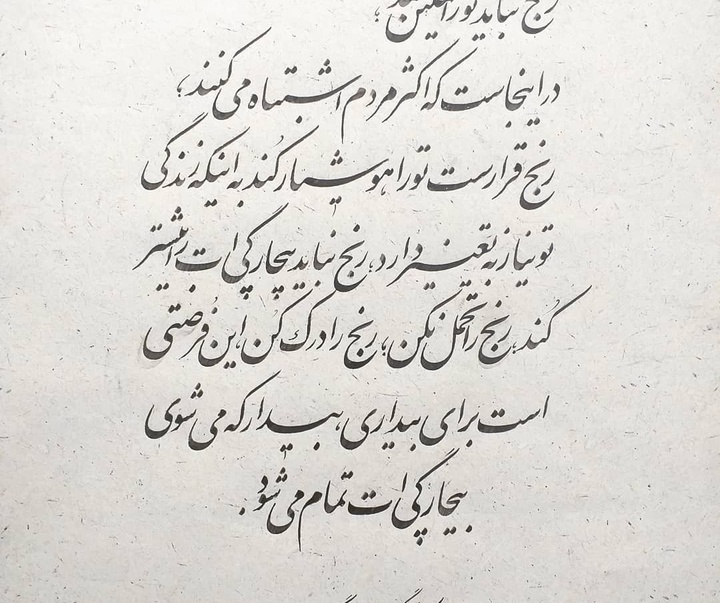 رنج نباید تو را غمگین کند؛
در اینجاست که اکثر مردم اشتباه می‌کنند،
رنج قرارست تو را هوشیار کُند به اینکه زندگی
تو نیاز به تغییر دارد، رنج نباید بیچارگی‌ات را بیشتر
کُند، رنج را تحمل نکن، رنج را درک کُن، این فُرصتی
است برای بیداری، بیدار که می‌شوی
بیچارگی‌ات تمام می‌شود.